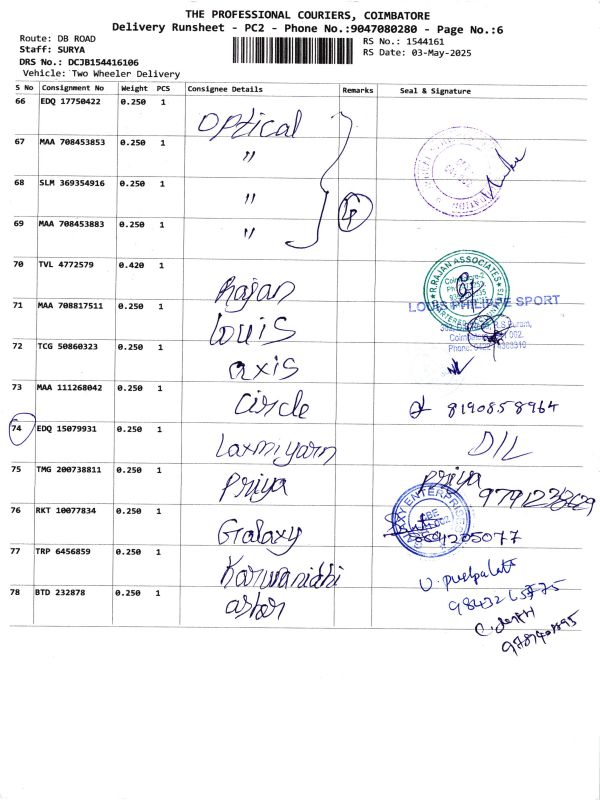 THE PROFESSIONAL COURIERS, COIMBATORE
Delivery Runsheet - PC2 - Phone No.:9047080280 - Page No.:6
Route: DB ROAD
Staff: SURYA
DRS No.: DCJB154416106
Vehicle: Two Wheeler Delivery
RS No.: 1544161
RS Date: 03-May-2025
S No Consignment No Weight PCS Consignee Details Remarks Seal & Signature
66 EDQ 17750422 0.250 1 Optical
67 MAA 708453853 0.250 1 "
68 SLM 369354916 0.250 1 "
69 MAA 708453883 0.250 1 "
70 TVL 4772579 0.420 1 Rajan R.RAJAN ASSOCIATES
71 MAA 708817511 0.250 1 Louis LOUIS PHILIPPE SPORT
72 TCG 50860323 0.250 1 axis
73 MAA 111268042 0.250 1 Circle 8190858964
74 EDQ 15079931 0.250 1 Laxmiyarn D/L
75 TMG 200738811 0.250 1 Priya Priya
76 RKT 10077834 0.250 1 Galaxy
77 TRP 6456859 0.250 1 Karunanidhi
78 BTD 232878 0.250 1